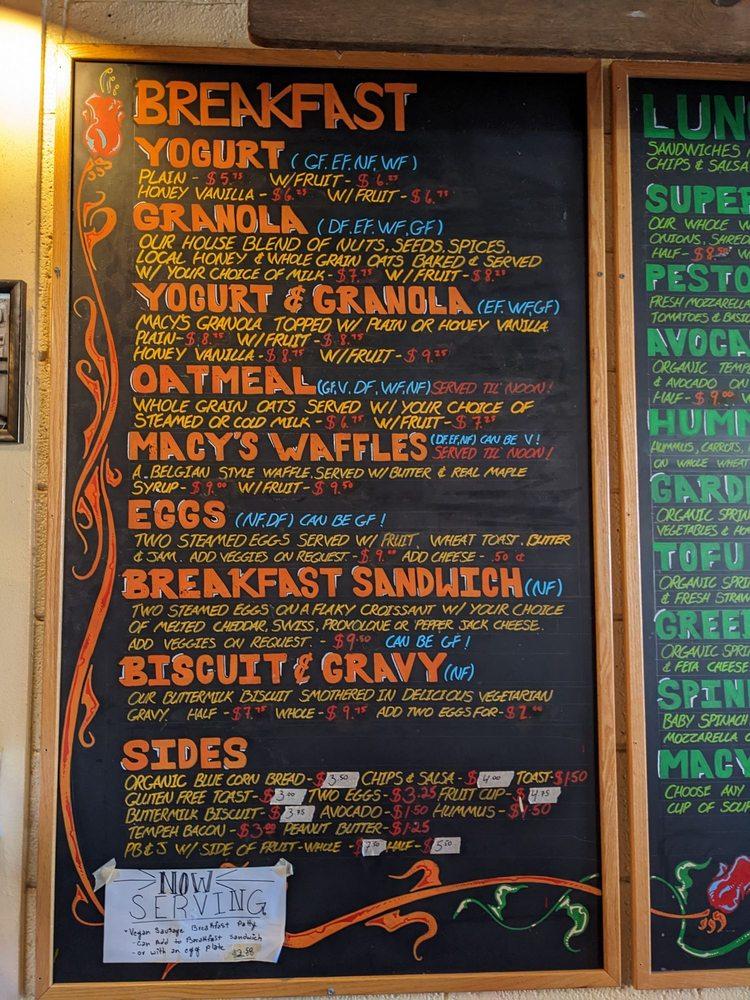 BREAKFAST
YOGURT (GF, EF, NF, WF)
PLAIN - $5.75 W/FRUIT - $6.25
HONEY VANILLA - $6.25 W/FRUIT - $6.75
GRANOLA (DF, EF, WF, GF)
OUR HOUSE BLEND OF NUTS, SEEDS, SPICES,
LOCAL HONEY & WHOLE GRAIN OATS BAKED & SERVED
W/ YOUR CHOICE OF MILK - $7.75 W/FRUIT - $8.25
YOGURT & GRANOLA (EF, WF, GF)
MACY'S GRANOLA TOPPED W/ PLAIN OR HONEY VANILLA
PLAIN - $8.25 W/FRUIT - $8.75
HONEY VANILLA - $8.75 W/FRUIT - $9.25
OATMEAL (GF, V, DF, WF, NF) SERVED TIL' NOON!
WHOLE GRAIN OATS SERVED W/ YOUR CHOICE OF
STEAMED OR COLD MILK - $6.75 W/FRUIT - $7.25
MACY'S WAFFLES (DF, EF, NF) CAN BE V!
SERVED TIL' NOON!
A BELGIAN STYLE WAFFLE, SERVED W/ BUTTER & REAL MAPLE
SYRUP - $9.00 W/FRUIT - $9.50
EGGS (NF, DF) CAN BE GF!
TWO STEAMED EGGS SERVED W/ FRUIT, WHEAT TOAST, BUTTER
& JAM. ADD VEGGIES ON REQUEST - $9.00 ADD CHEESE - .50 ¢
BREAKFAST SANDWICH (NF)
TWO STEAMED EGGS ON A FLAKY CROISSANT W/ YOUR CHOICE
OF MELTED CHEDDAR, SWISS, PROVOLONE OR PEPPER JACK CHEESE.
ADD VEGGIES ON REQUEST. - $9.50 CAN BE GF!
BISCUIT & GRAVY (NF)
OUR BUTTERMILK BISCUIT SMOTHERED IN DELICIOUS VEGETARIAN
GRAVY. HALF - $7.75 WHOLE - $9.75 ADD TWO EGGS FOR - $2.00
SIDES
ORGANIC BLUE CORN BREAD - $3.50 CHIPS & SALSA - $4.00 TOAST - $1.50
GLUTEN FREE TOAST - $3.00 TWO EGGS - $3.25 FRUIT CUP - $4.75
BUTTERMILK BISCUIT - $3.75 AVOCADO - $1.50 HUMMUS - $1.50
TEMPEH BACON - $3.00 PEANUT BUTTER - $1.25
PB & J W/ SIDE OF FRUIT - WHOLE - $7.50 HALF - $5.50
NOW
SERVING
• Vegan Sausage Breakfast Patty
- Can Add to Breakfast Sandwich
- or with an egg plate $2.50
LUN
SANDWICHES
CHIPS & SALSA
SUPE
OUR WHOLE W
ONIONS, SHRED
HALF - $8.50
PESTO
FRESH MOZZARELL
TOMATOES & BASIL
AVOCA
ORGANIC TEMP
& AVOCADO ON
HALF - $9.00
HUMM
HUMMUS, CARROTS,
ON WHOLE WHEAT
GARD
ORGANIC SPRIN
VEGETABLES & HO
TOFU
ORGANIC SPRI
& FRESH STRAW
GREE
ORGANIC SPRI
& FETA CHEESE
SPIN
BABY SPINACH
MOZZARELLA
MACY
CHOOSE ANY
CUP OF SOU